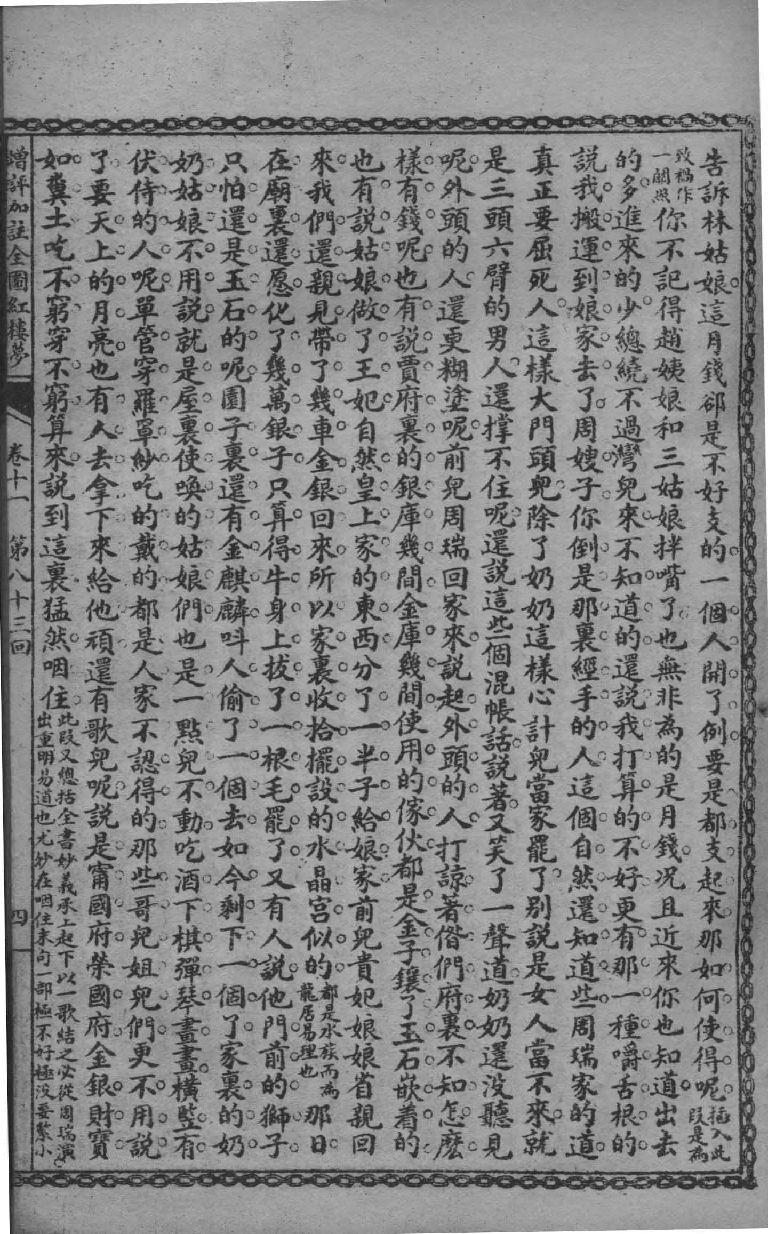 告訴林姑娘這月錢卻是不好支的一個人開了例要是都支起來那如何使得呢插入此段是為
致禍作一關照你不記得趙姨娘和三姑娘拌嘴了也無非為的是月錢况且近來你也知道出去
的多進來的少總繞不過灣兒來不知道的還說我打算的不好更有那一種嚼舌根的
說我搬運到娘家去了周嫂子你倒是那裏經手的人這個自然還知道些周瑞家的道
真正要屈死人這樣大門頭兒除了奶奶這樣心計兒當家罷了别說是女人當不來就
是三頭六臂的男人還撑不住呢還說這些個混帳話說著又笑了一聲道奶奶還没聽見
呢外頭的人還更糊塗呢前兒周瑞回家來說起外頭的人打諒著偺們府裏不知怎麽
樣有錢呢也有說賈府裏的銀庫幾間金庫幾間使用的傢伙都是金子鑲了玉石嵌着的
也有說姑娘做了王妃自然皇上家的東西分了一半子給娘家前兒貴妃娘娘省親回
來我們還親見帶了幾車金銀回來所以家裏收拾擺設的水晶宮似的都是水族而為龍居易理也那日
在廟裏還愿化了幾萬銀子只算得牛身上拔了一根毛罷了又有人說他門前的獅子
只怕還是玉石的呢園子裏還有金麒麟呌人偷了一個去如今剩下一個了家裏的奶
奶姑娘不用說就是屋裏使喚的姑娘們也是一點兒不動吃酒下棋彈琴畫畫橫豎有
伏侍的人呢單管穿羅罩紗吃的戴的都是人家不認得的那些哥兒姐兒們更不用說
了要天上的月亮也有人去拿下來給他頑還有歌兒呢說是甯國府榮國府金銀財寶
如糞土吃不窮穿不窮算來說到這裏猛然咽住此段又總括全書妙義承上起下以一歌結之必從周瑞演出重明易道也尤妙在咽住末句一部極不好極没要緊小
增評加註全圖紅樓夢 卷十一 第八十三回 四